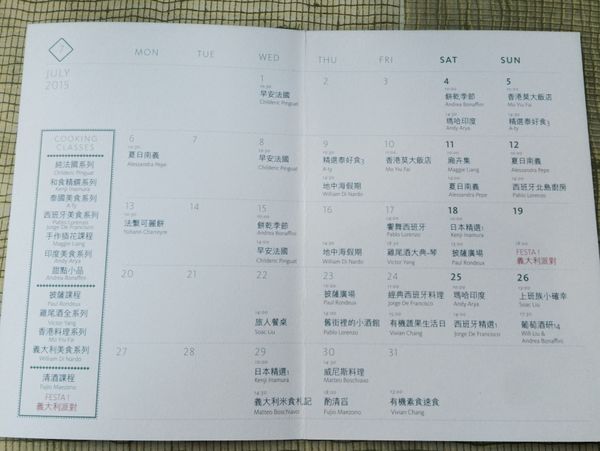 7
JULY
2015
MON TUE WED THU FRI SAT SUN
1
早安法國
Childeric Pinguat
2
3
4
餅乾季節
Andrea Bonaffini
瑪哈印度
Andy Arya
5
香港莫大飯店
Mo Yiu Fai
精選泰好食3
A-ty
6
夏日南義
Alessandra Pepe
7
8
早安法國
Childeric Pinguat
9
精選泰好食3
A-ty
地中海假期
William Di Nardo
10
香港莫大飯店
Mo Yiu Fai
11
廠卉集
Maggie Liang
夏日南義
Alessandra Pepe
12
夏日南義
Alessandra Pepe
西班牙北島廚房
Pablo Lorenzo
13
法繫可麗餅
14
15
餅乾季節
Andrea Bonaffini
早安法國
Childeric Pinguat
16
地中海假期
William Di Nardo
17
饗舞西班牙
Pablo Lorenzo
雞尾酒大典-琴
Victor Yang
18
日本精選1
Kenji Inamura
披薩廣場
Paul Rondeux
19
FESTA !
義大利派對
20
21
22
旅人餐桌
Soac Liu
23
披薩廣場
Paul Rondeux
舊街裡的小酒館
Pablo Lorenzo
24
經典西班牙料理
Jorge De Francisco
有機蔬果生活日
Vivian Chang
25
瑪哈印度
Andy Arya
西班牙精選1
Jorge De Francisco
26
上班族小確幸
Soac Liu
葡萄酒研14
Will Liu &
Andrea Bonaffini
27
28
29
日本精選1
Kenji Inamura
義大利米食札記
Matteo Boschiavo
30
威尼斯料理
Matteo Boschiavo
酌清酒
Fujio Manzono
31
有機素食速食
Vivian Chang
COOKING
CLASSES
純法國系列
Childeric Pinguat
和食精饌系列
Kenji Inamura
泰國美食系列
A-ty
西班牙美食系列
Pablo Lorenzo
Jorge De Francisco
手作插花課程
Maggie Liang
印度美食系列
Andy Arya
甜點小品
Andrea Bonaffini
披薩課程
Paul Rondeux
雞尾酒全系列
Victor Yang
香港料理系列
Mo Yiu Fai
義大利美食系列
William Di Nardo
清酒課程
Fujio Manzono
FESTA !
義大利派對